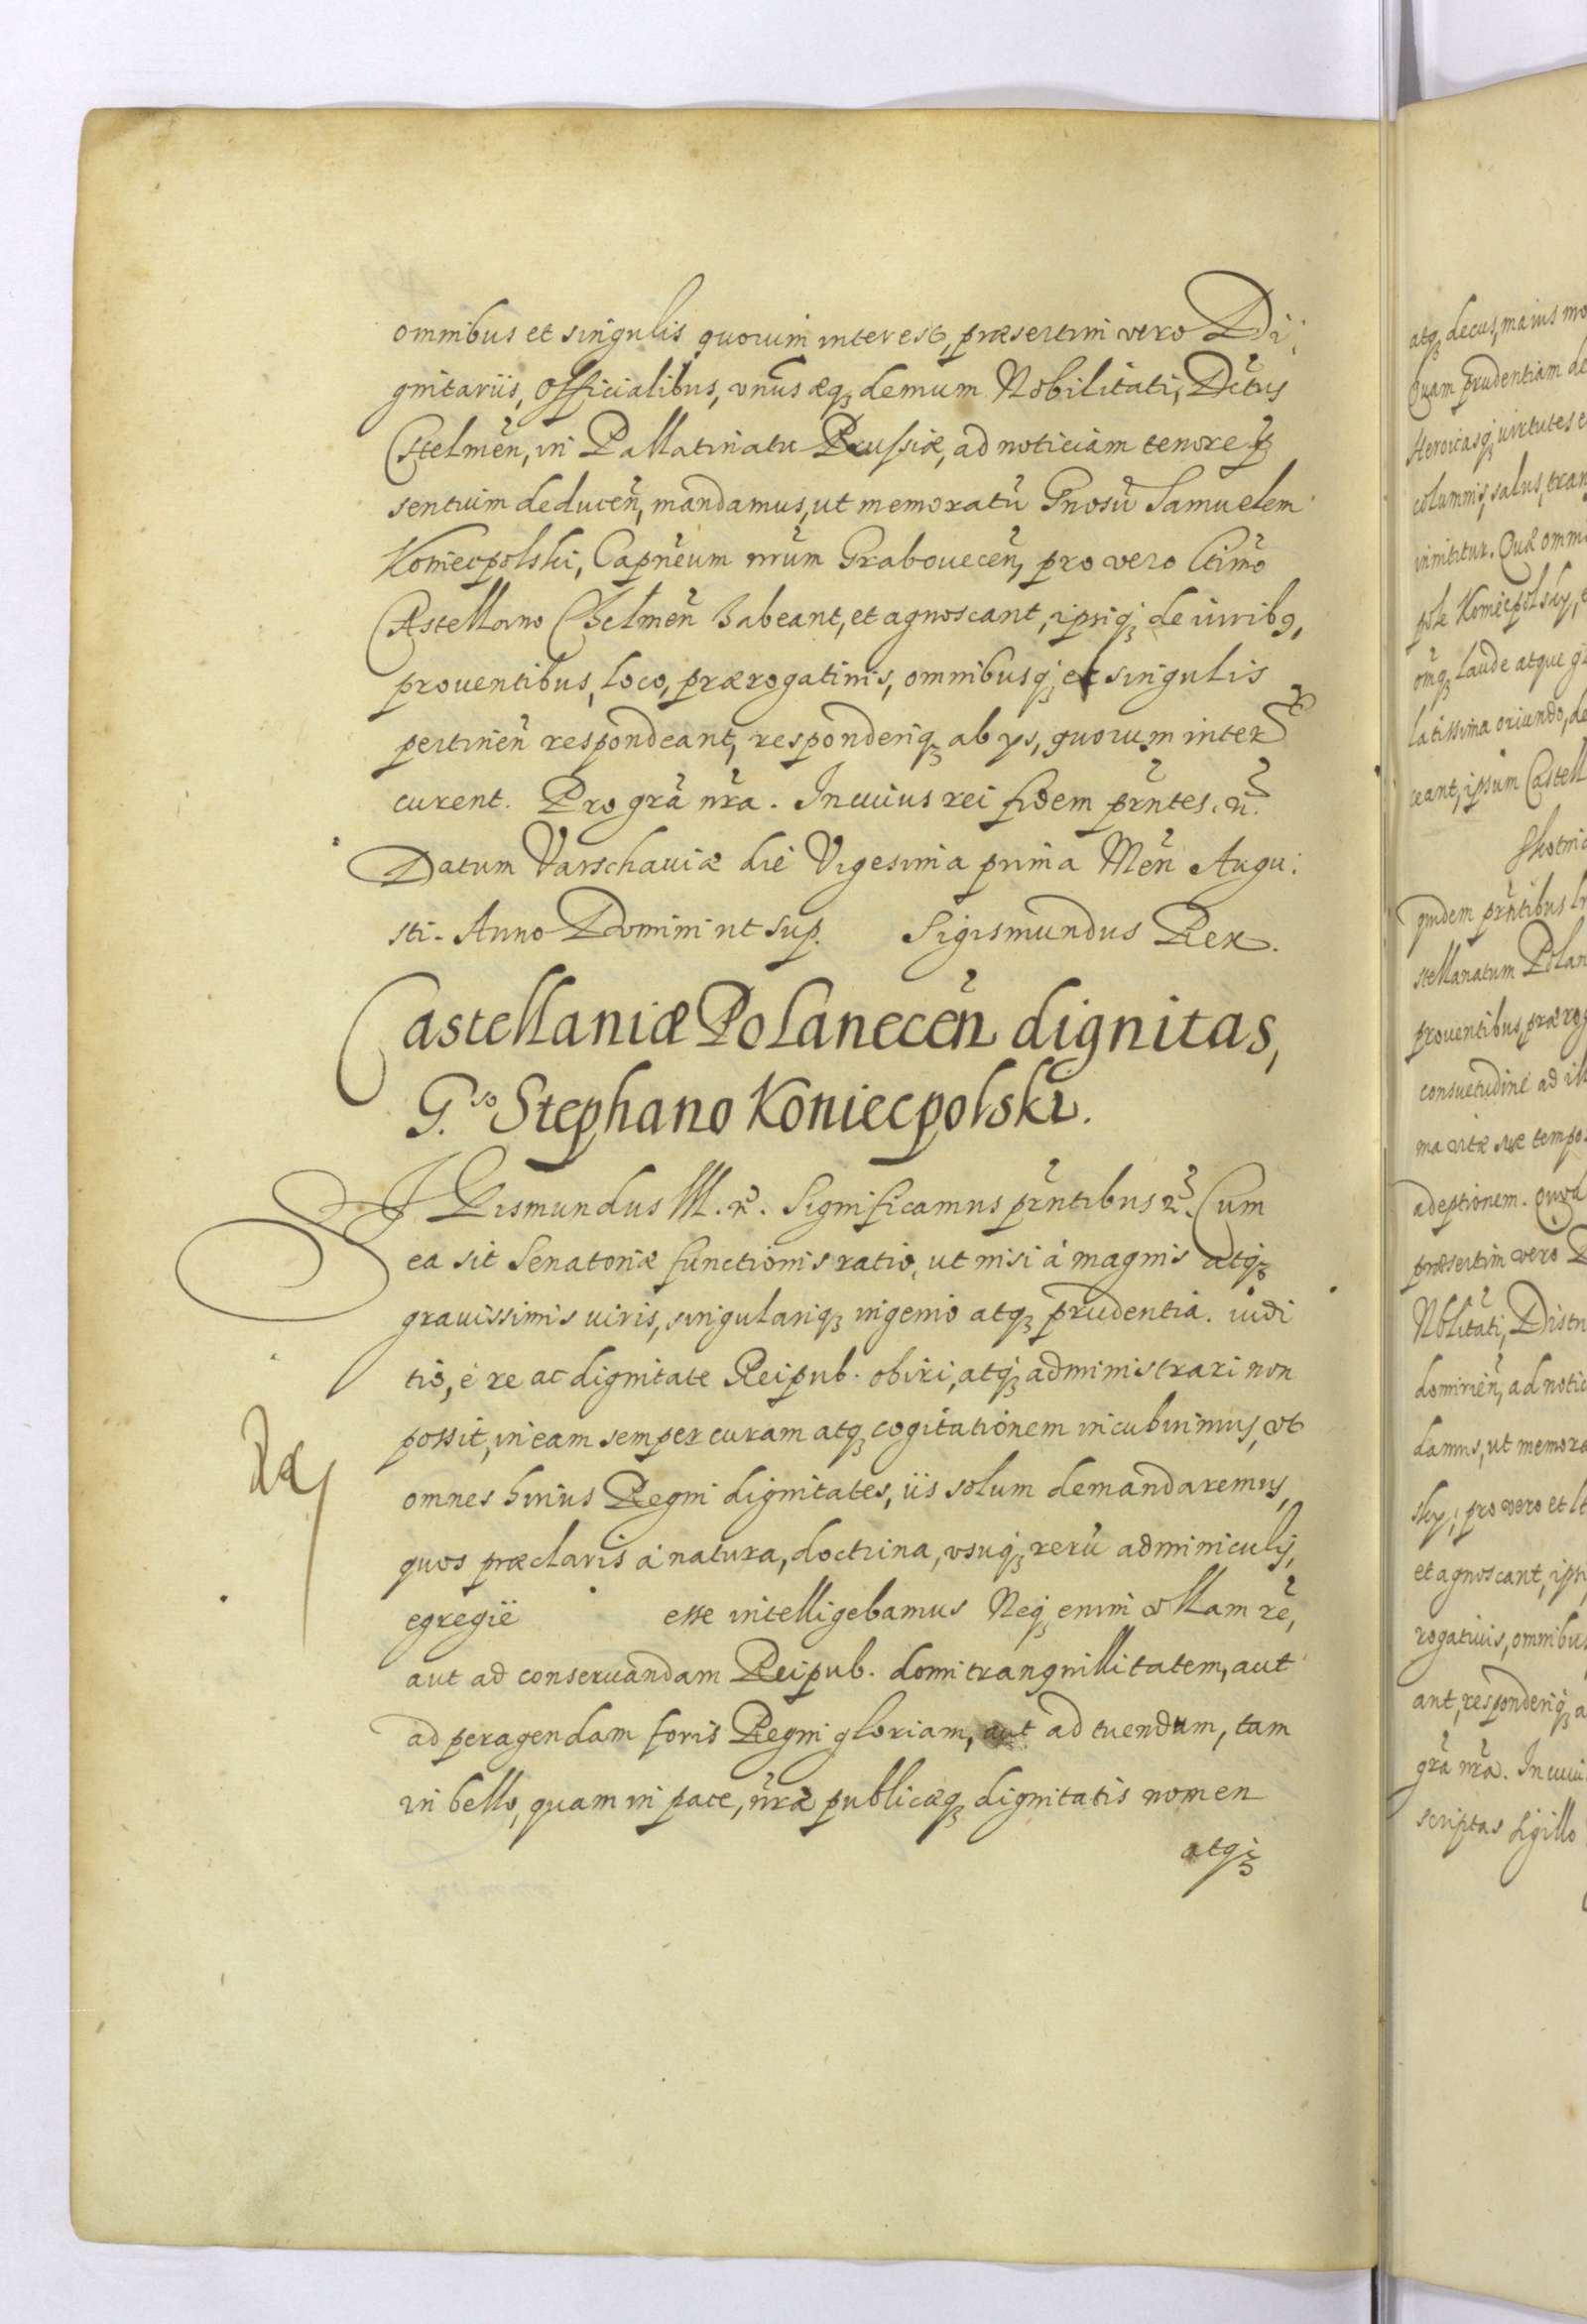 omnibus et singulis quorum interest, præsertim vero Di:
gnitariis, Officialibus, vnũsæq; demum Nobilitati, Dĩtus
Chelmeñ, in Pallatinatu Prussiæ, ad noticiam tenore p̃
sentium deduceñ, mandamus, ut memoratũ Gnosũ Samuelem
Koniecpolski, Capñeum nrũm Graboueceñ, pro vero ltimõ
Castellano Chelmeñ habeant, et agnoscant, ipsiq; de iuribq,
prouentibus, loco, prærogatiuis, omnibusq; et singulis
pertineñ respondeant, responderiq; ab ys, quorum inter
curent. Pro grã nrã. In cuius rei fidem prñtes. ñ.
Datum Varschauiæ die Vigesima prima Meñ Augu:
sti. Anno Domini ut sup. Sigismundus Rex.
Castellaniæ Polaneceñ dignitas,
G.so Stephano Koniecpolski.
SIGismundus III. ñ. Significamus prñtibus ñ. Cum
ea sit Senatoriæ functionis ratio, ut nisi à magnis atq;
grauissimis uiris, singulariq; ingenio atq; prudentia. iudi
tio, è re ac dignitate Reipub. obiri, atq; administrari non
possit, in eam semper curam atq; cogitationem incubuimus, vt
omnes huius Regni dignitates, iis solum demandaremus,
quos præclaris à natura, doctrina, vsuq; rerũ adminiculis,
egregiè esse intelligebamus Neq; enim vllam rẽ,
aut ad conseruandam Reipub. domi tranquillitatem, aut
ad peragendam foris Regni gloriam, aut ad tuendum, tam
in bello, quam in pace, nrã publicæq; dignitatis nomen
atq;
atq; decus, maius mo
Quam prudentiam de
Heroicasq; uirtutes e
columnis, salus, tran
innititur. Quæ omni
pole Koniecpolsky,
omq; laude atque gl
latissima oriundo, de
ceant, ipsum Castell
quidem prñtibus lr
stellanatum Polan
prouentibus, prærog
consuetudine ad ill
ma vitæ suæ tempo
adeptionem. Quod
præsertim vero D
Nblitati, Distri
dominieñ, ad notic
damus, ut memora
sky, pro vero et lt
et agnoscant, ipsi
rogatiuis, omnibus
ant, responderiq; a
grã nrã. In cuiu
scriptas sigillo